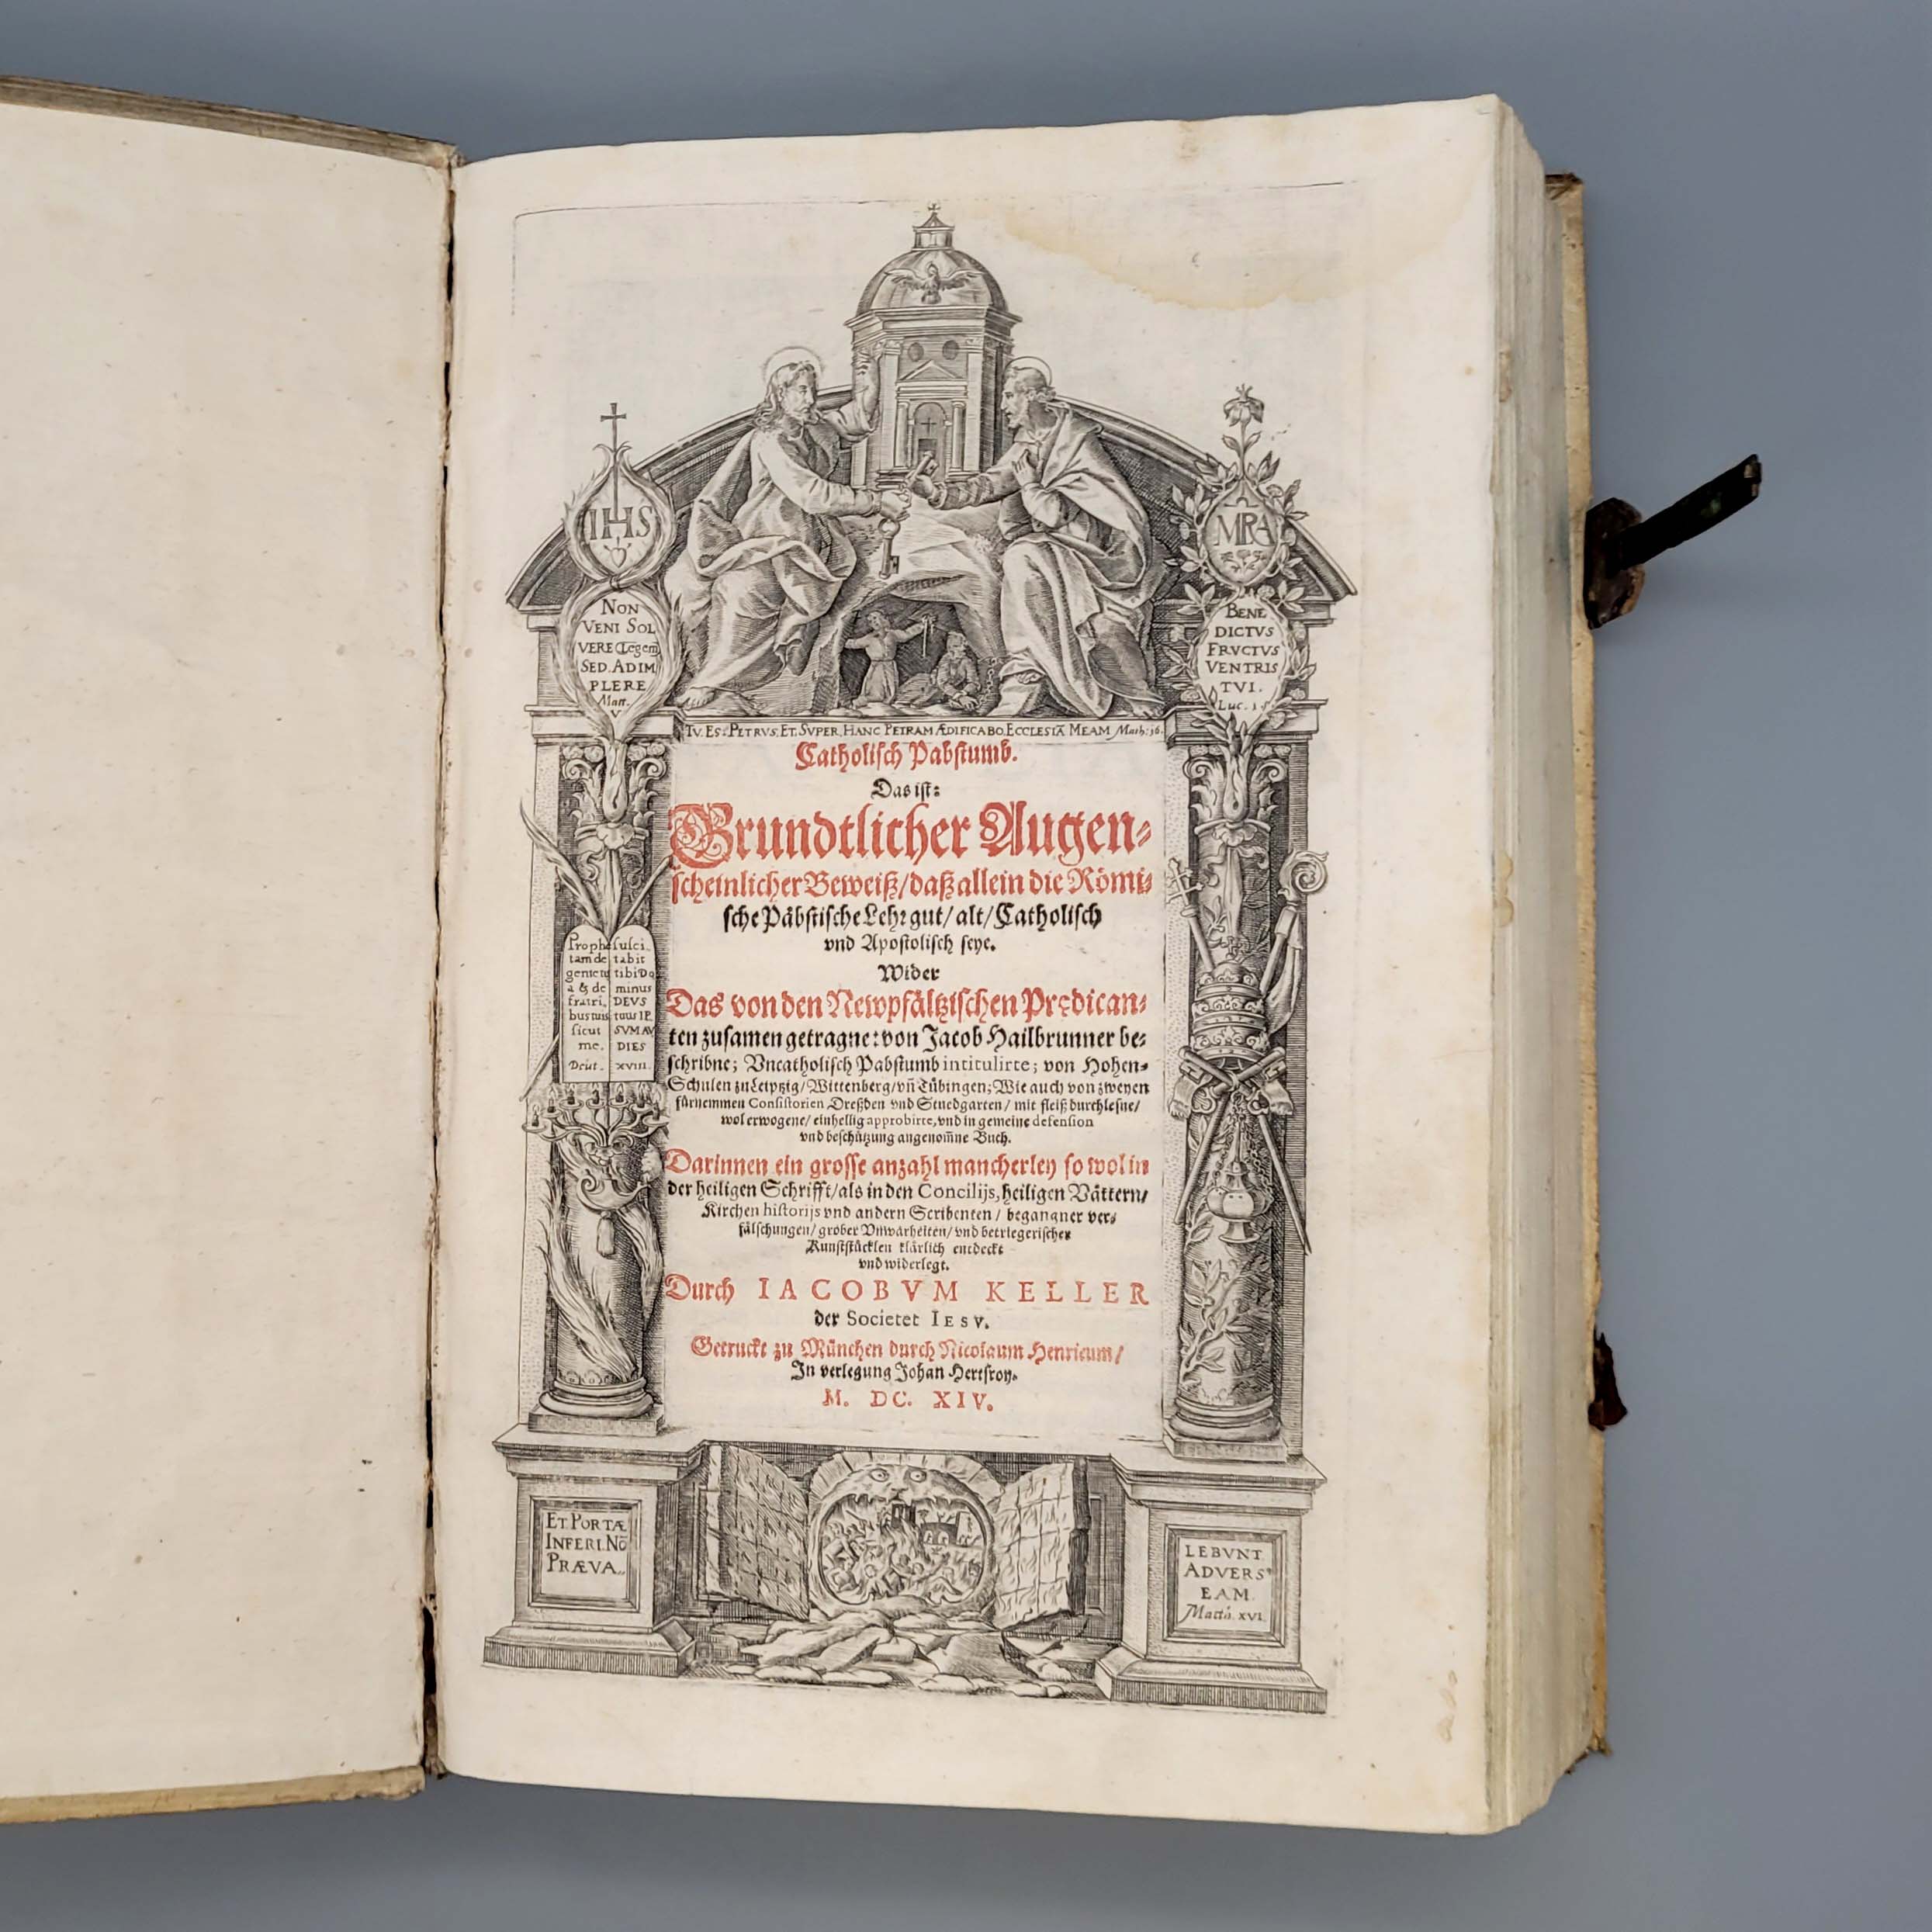 IHS
MRA
NON
VENI SOL
VERE Legem
SED. ADIM
PLERE
Matt.
V
BENE
DICTVS
FRVCTVS
VENTRIS
TVI.
Luc. 1
TV. ES. PETRVS. ET. SVPER. HANC PETRAM ÆDIFICABO. ECCLESIÃ MEAM Math: 16.
Catholisch Pabstumb.
Das ist:
Grundtlicher Augen-
scheinlicher Beweiß/ daß allein die Römi-
sche Päbstische Lehr gut/ alt/ Catholisch
vnd Apostolisch seye.
Wider
Das von den Newpfältzischen Prędican-
ten zusamen getragne: von Jacob Hailbrunner be-
schribne; Vncatholisch Pabstumb intitulirte; von Hohen-
Schulen zu Leiptzig/ Wittenberg/ vn̄ Tübingen; Wie auch von zweyen
fürnemmen Consistorien Dreßden vnd Stuedgarten/ mit fleiß durchlesne/
wol erwogene/ einhellig approbirte, vnd in gemeine defension
vnd beschützung angenom̄ne Buch.
Darinnen ein grosse anzahl mancherley so wol in
der heiligen Schrifft/ als in den Concilijs, heiligen Vättern/
Kirchen historijs vnd andern Scribenten/ begangner ver-
fälschungen/ grober Vnwarheiten/ vnd betriegerischer
Kunststücklen klärlich entdeckt
vnd widerlegt.
Durch IACOBVM KELLER
der Societet IESV.
Getruckt zu München durch Nicolaum Henricum/
In verlegung Johan Hertsroy.
M. DC. XIV.
Prophe susci
tam de tabit
gente tu tibi Do
a & de minus
fratri, DEVS
bus tuis tuus IP
sicut SVM AV
me. DIES
Deut. XVIII.
ET. PORTÆ
INFERI. NÕ
PRÆVA,,
LEBVNT.
ADVERS'
EAM.
Matth. XVI.